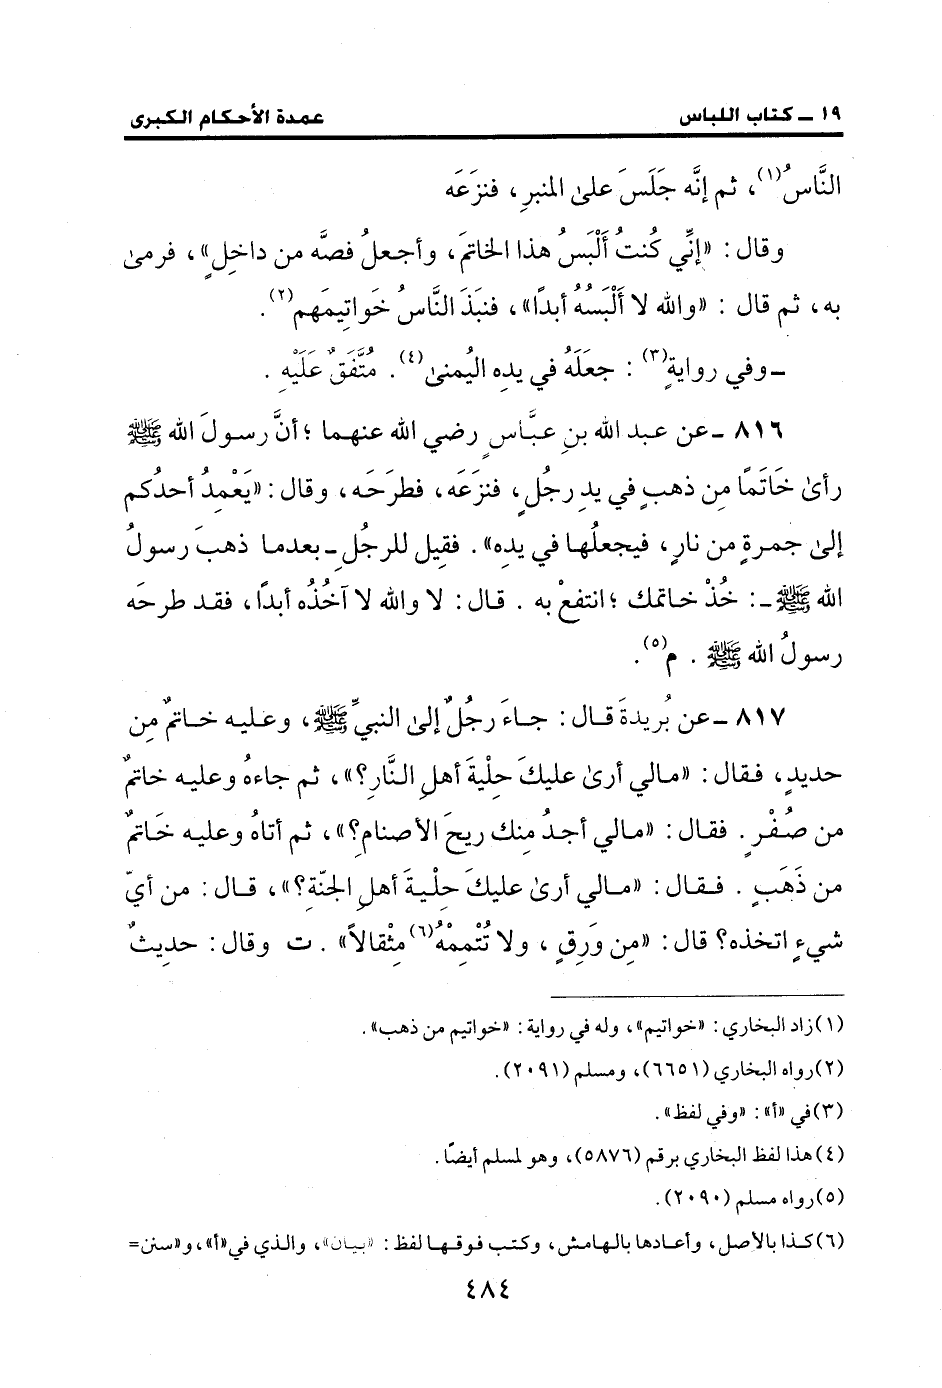 ١٩ ـ كتاب اللباس عمدة الأحكام الكبرى
النَّاسُ(١)، ثم إنَّه جَلَسَ على المنبرِ، فنزَعَه
وقال: «إنِّي كُنتُ أَلْبَسُ هذا الخاتمَ، وأجعلُ فصَّه من داخِلٍ»، فرمىٰ
به، ثم قال: «والله لا أَلْبَسُهُ أبدًا»، فنبَذَ النَّاسُ خَواتِيمَهم(٢).
ـ وفي روايةٍ(٣): جعلَهُ في يدِه اليُمنىٰ(٤). مُتَّفَقٌ عَلَيْهِ.
٨١٦ ـ عن عبد الله بنِ عبَّاسٍ رضي الله عنهما؛ أنَّ رسولَ الله ﷺ
رأىٰ خَاتَمًا مِن ذهبٍ في يدِ رجُلٍ، فنزَعَه، فطرحَه، وقال: «يَعْمِدُ أحدُكم
إلىٰ جمرةٍ من نارٍ، فيجعلُها في يدِه». فقِيل للرجُلِ ـ بعدما ذهبَ رسولُ
الله ﷺ ـ: خُذْ خاتمك؛ انتفعْ به. قال: لا والله لا آخُذُه أبدًا، فقد طرحَه
رسولُ الله ﷺ. م(٥).
٨١٧ ـ عن بُريدةَ قال: جاءَ رجُلٌ إلى النبيِّ ﷺ، وعليه خاتمٌ مِن
حديدٍ، فقال: «مالي أرىٰ عليكَ حِلْيةَ أهلِ النَّارِ؟»، ثم جاءهُ وعليه خاتمٌ
من صُفْرٍ. فقال: «مالي أجدُ مِنك ريحَ الأصنامِ؟»، ثم أتاهُ وعليه خَاتمٌ
من ذَهَبٍ. فقال: «مالي أرىٰ عليكَ حِلْيةَ أهلِ الجنّة؟»، قال: مِن أيِّ
شيءٍ اتخذه؟ قال: «مِن وَرِقٍ، ولا تُتْمِمْهُ(٦) مِثْقالاً». ت وقال: حديثٌ
(١) زاد البخاري: «خواتيم»، وله في رواية: «خواتيم من ذهب».
(٢) رواه البخاري (٦٦٥١)، ومسلم (٢٠٩١).
(٣) في «أ»: «وفي لفظ».
(٤) هذا لفظ البخاري برقم (٥٨٧٦)، وهو لمسلم أيضًا.
(٥) رواه مسلم (٢٠٩٠).
(٦) كذا بالأصل، وأعادها بالهامش، وكتب فوقها لفظ: «بيان»، والذي في «أ»، و«سنن=
٤٨٤